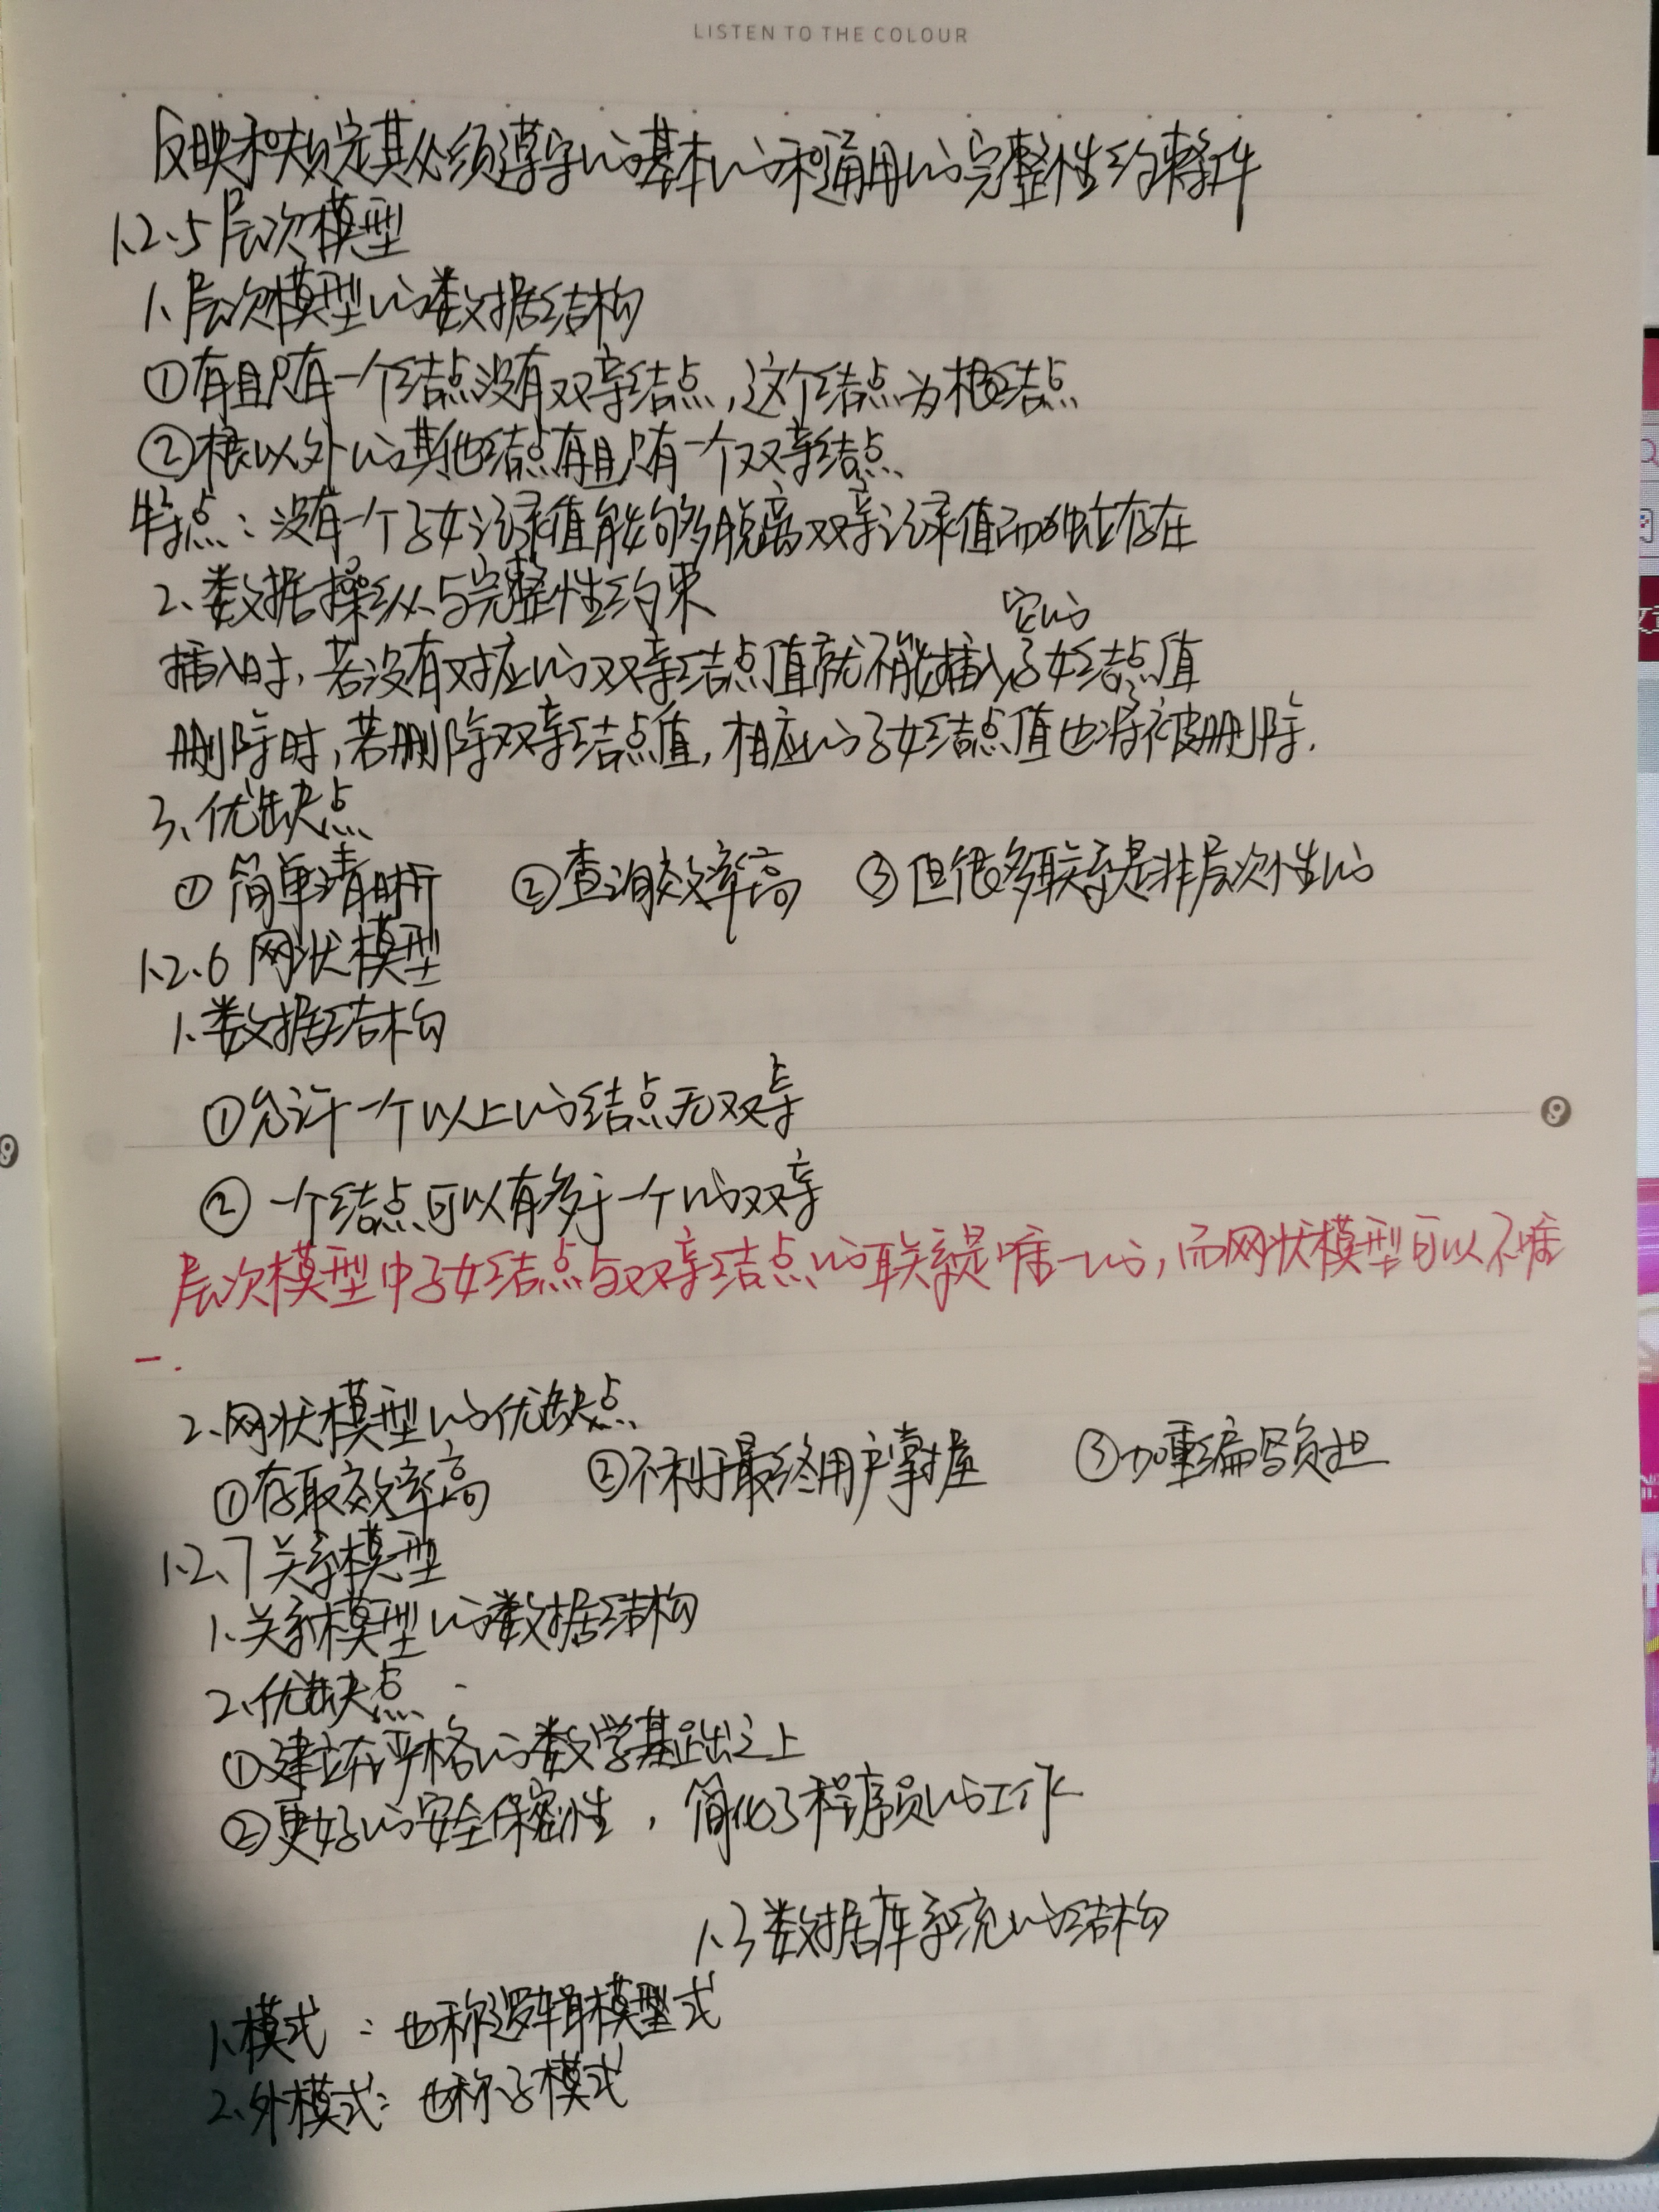 LISTEN TO THE COLOUR
反映和规定其必须遵守的基本的和通用的完整性约束条件
1.2.5 层次模型
1、层次模型的数据结构
①有且只有一个结点没有双亲结点,这个结点为根结点
②根以外的其他结点有且只有一个双亲结点
特点:没有一个子女记录值能够脱离双亲记录值而独立存在
2、数据操纵与完整性约束
插入时,若没有对应的双亲结点值就不能插入它的子女结点值
删除时,若删除双亲结点值,相应的子女结点值也将被删除.
3、优缺点
①简单清晰 ②查询效率高 ③但很多联系是非层次性的
1.2.6 网状模型
1、数据结构
①允许一个以上的结点无双亲
9 9
②一个结点可以有多于一个的双亲
层次模型中子女结点与双亲结点的联系是唯一的,而网状模型可以不唯
一.
2、网状模型的优缺点
①存取效率高 ②不利于最终用户掌握 ③加重编写负担
1.2.7 关系模型
1、关系模型的数据结构
2、优缺点
①建立在严格的数学基础之上
②更好的安全保密性,简化了程序员的工作
1.3 数据库系统的结构
1、模式:也称逻辑模式
2、外模式:也称子模式